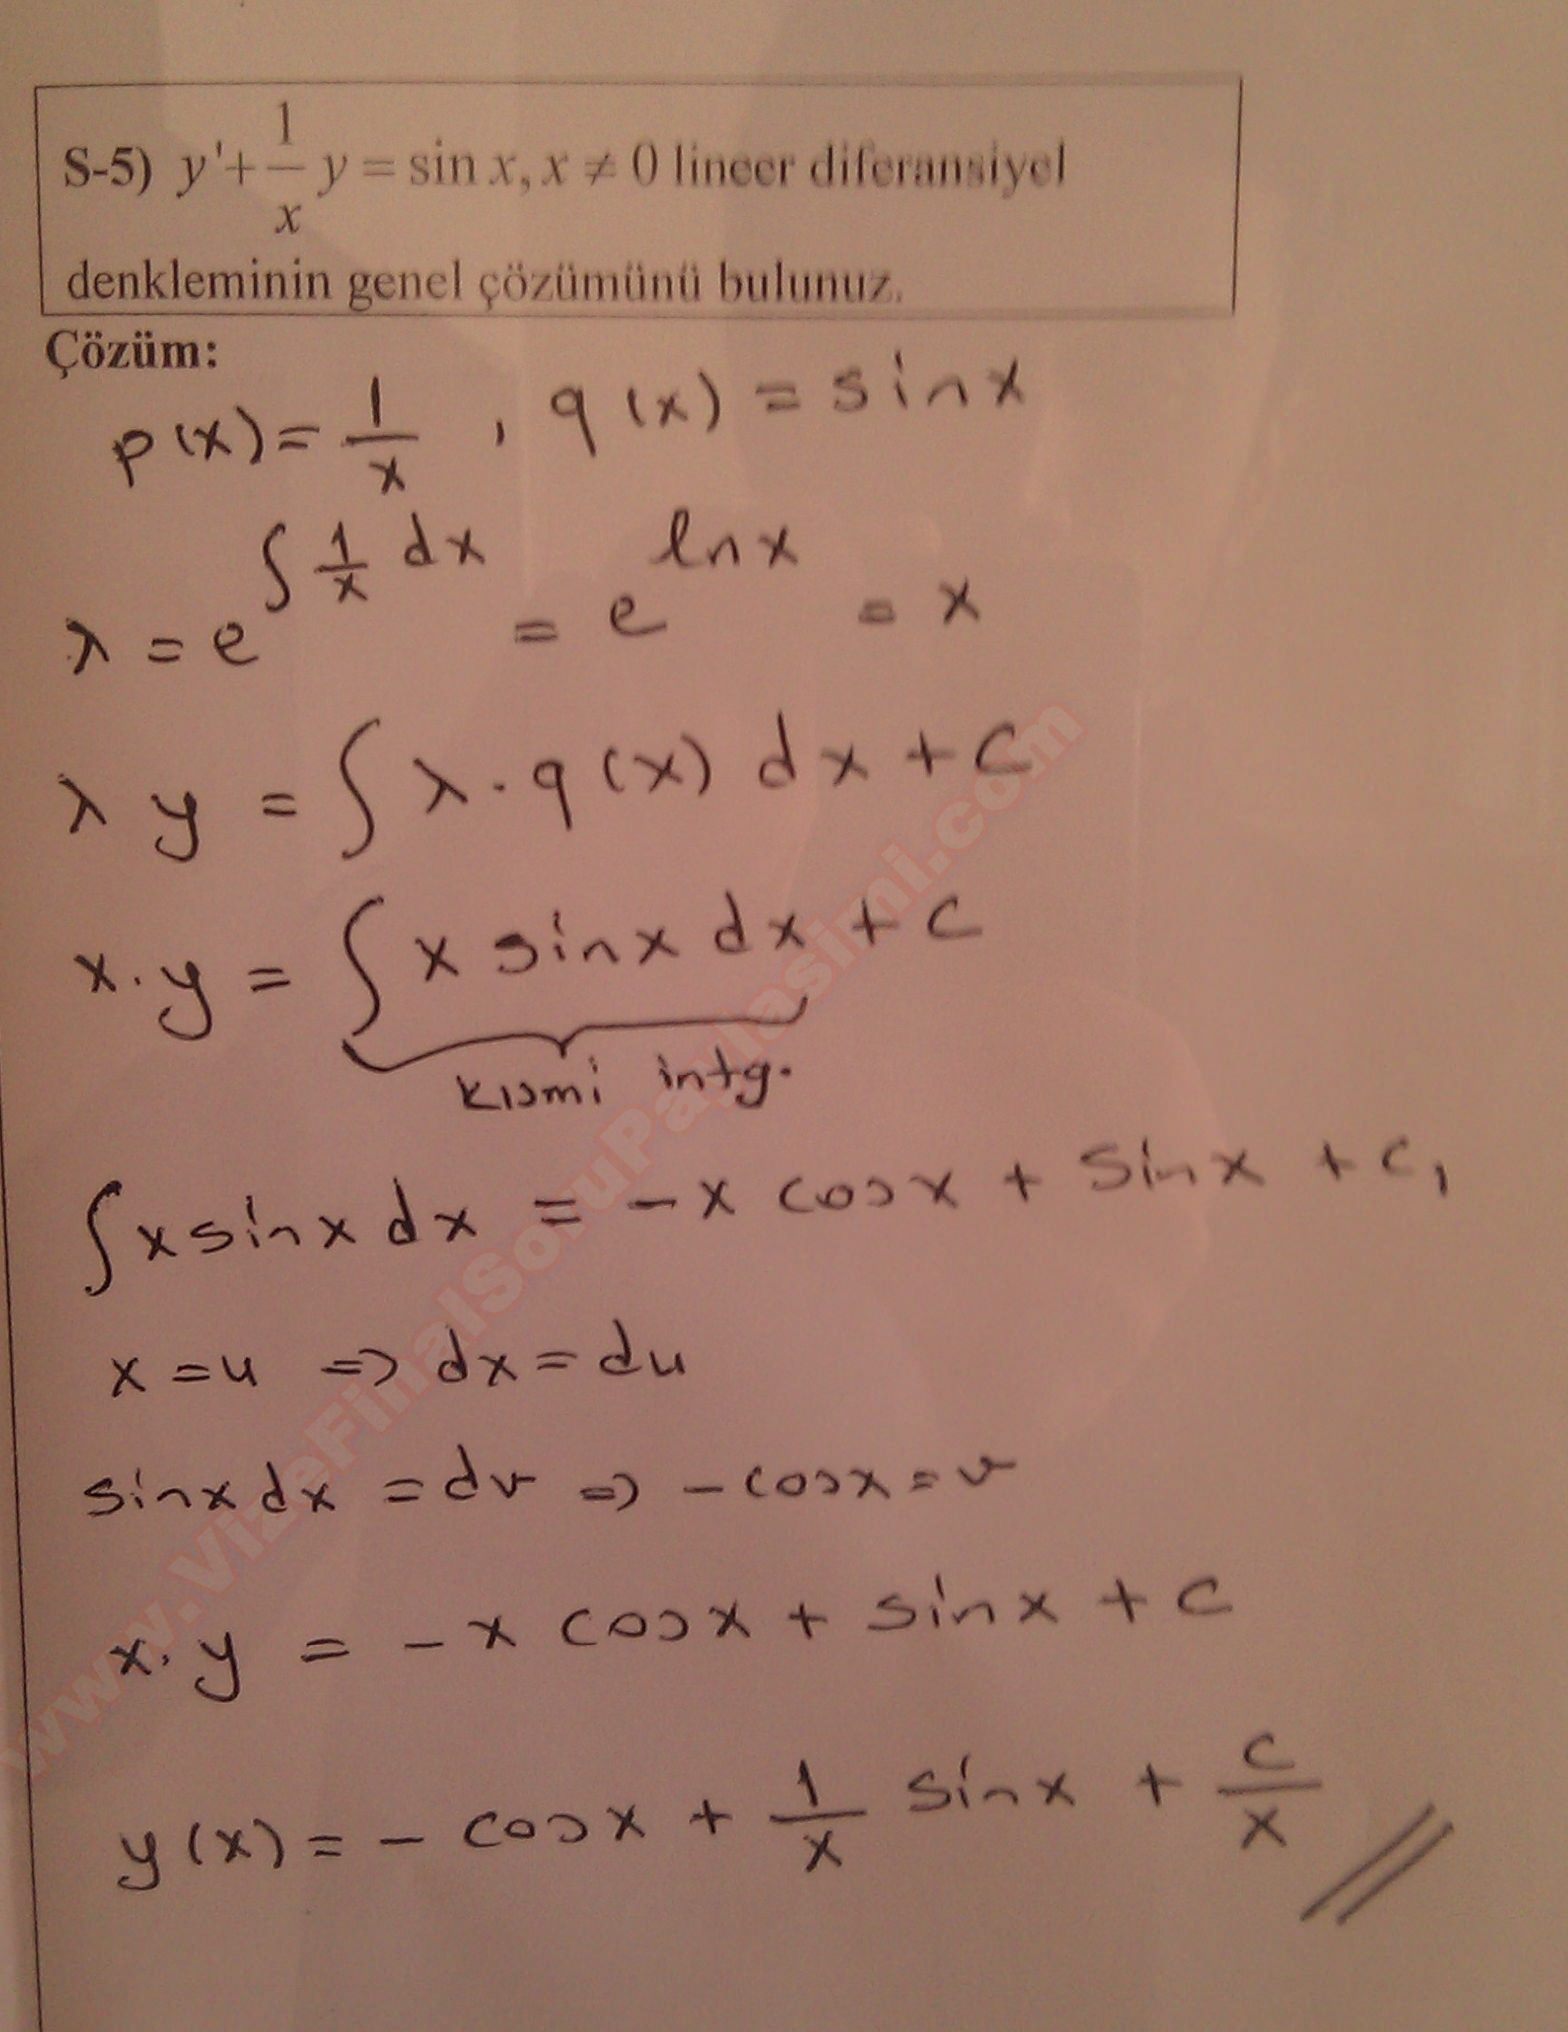 S-5) y'+ 1/x y = sin x, x ≠ 0 lineer diferansiyel
denkleminin genel çözümünü bulunuz.
Çözüm:
p(x) = 1/x , q(x) = sinx
λ = e^∫ 1/x dx = e^lnx = x
λ y = ∫ λ · q(x) dx + c
x · y = ∫ x sinx dx + c
kısmi intg.
∫ x sinx dx = - x cosx + sinx + c₁
x = u => dx = du
sinx dx = dv => - cosx = v
x · y = - x cosx + sinx + c
y(x) = - cosx + 1/x sinx + c/x //
www.VizeFinalSoruPaylasimi.com